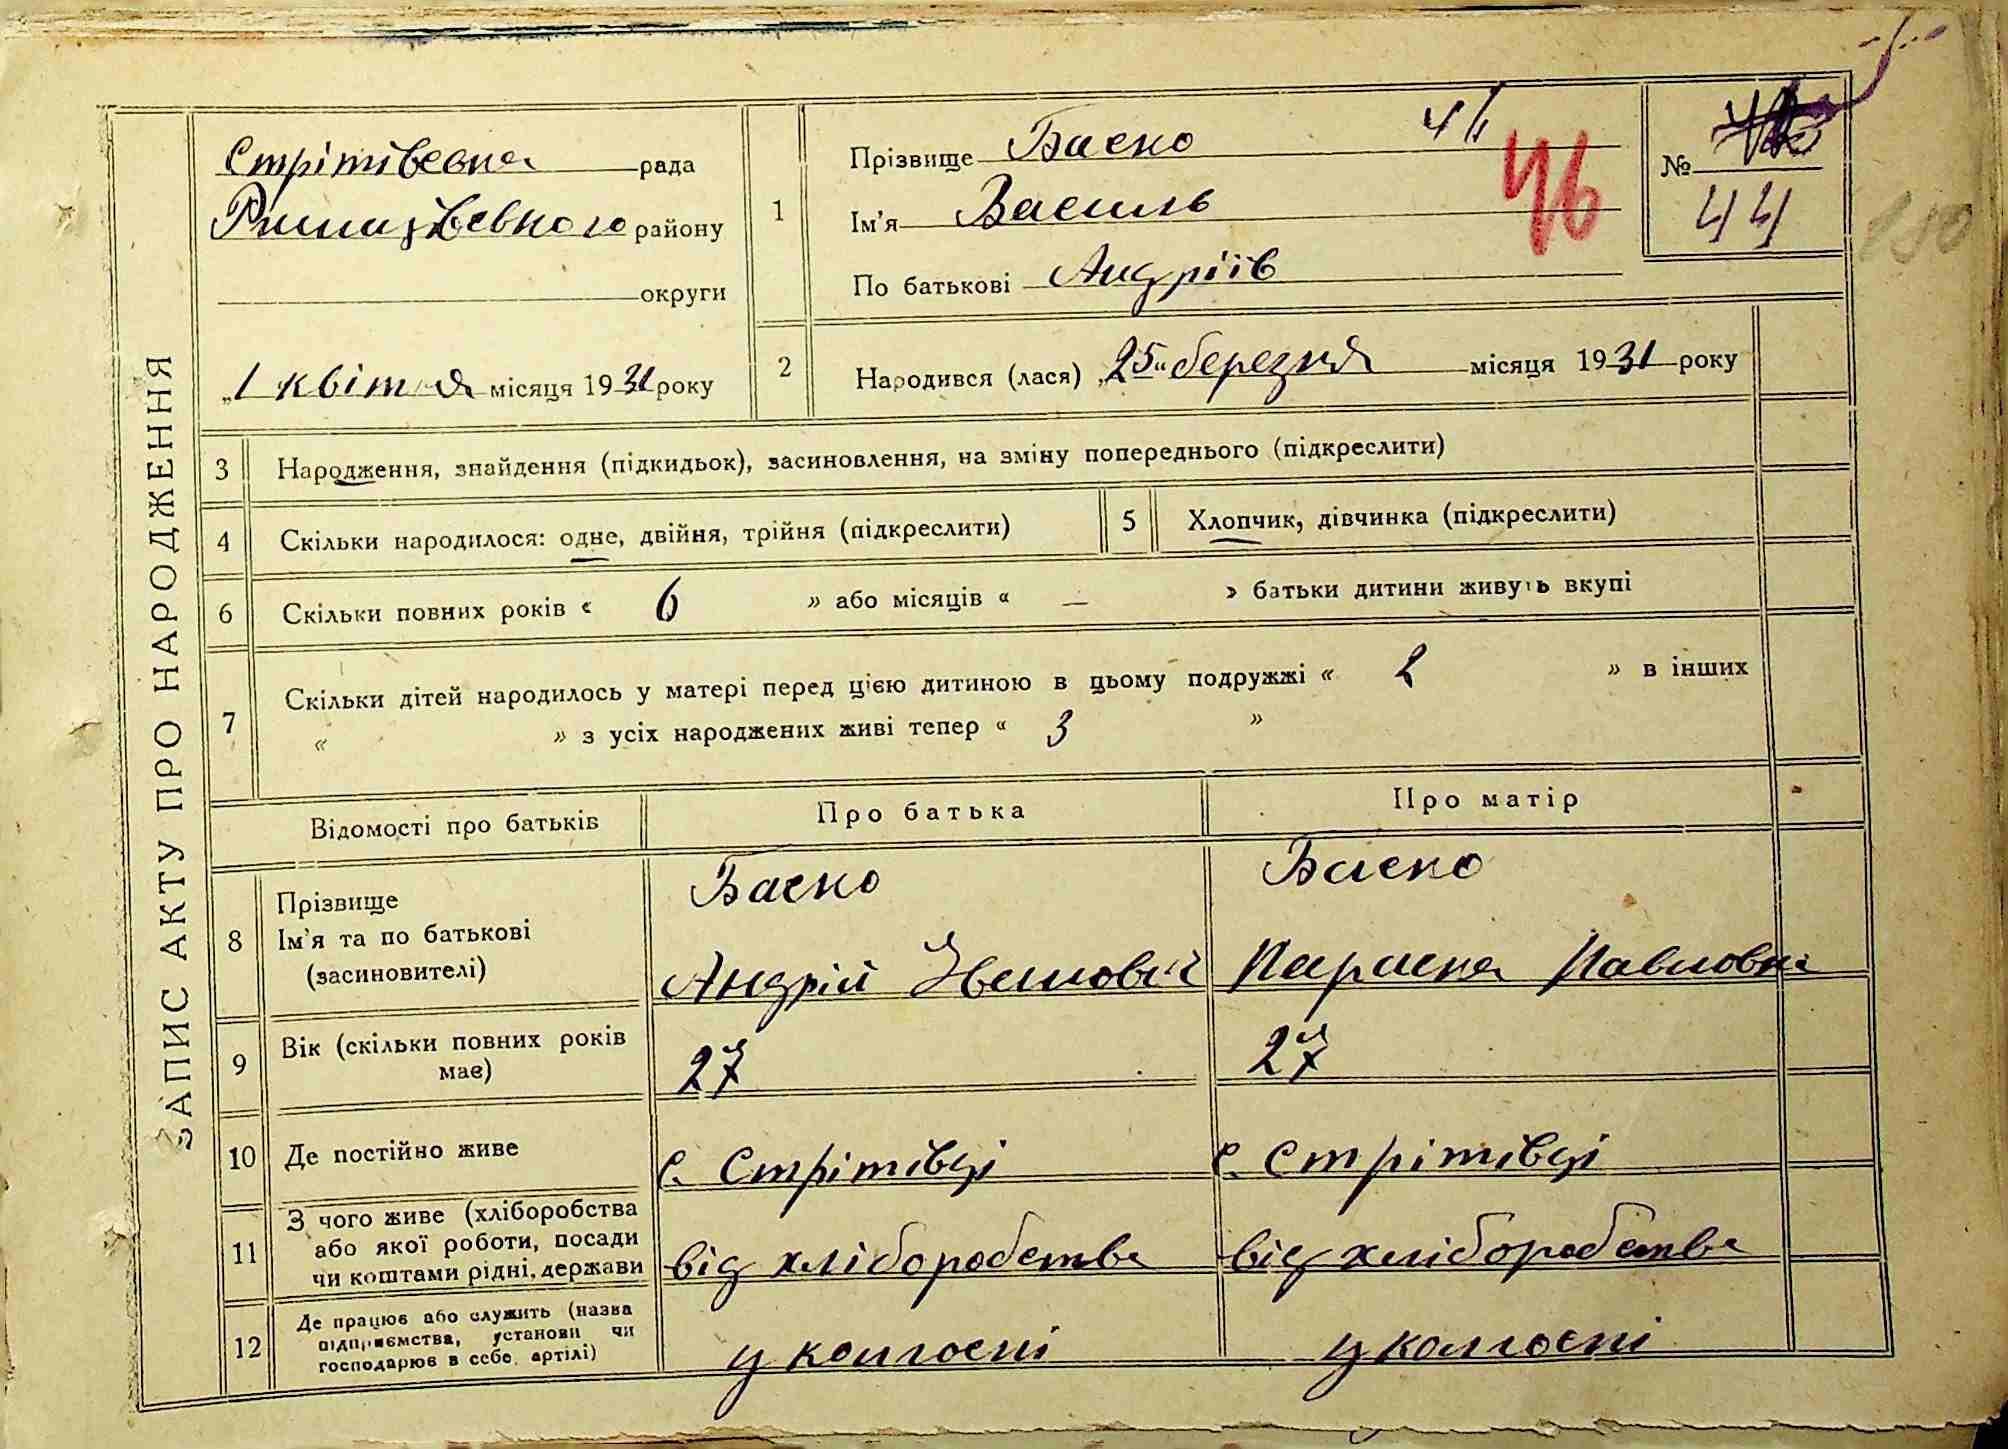 ЗАПИС АКТУ ПРО НАРОДЖЕННЯ
Стрітівська рада
району
округи
„1 квітня місяця 1931 року
1
Прізвище Баско
Ім'я Василь
По батькові Андріїв
46
№
44
150
2
Народився (лася) „25" березня місяця 1931 року
3 Народження, знайдення (підкидьок), засиновлення, на зміну попереднього (підкреслити)
4 Скільки народилося: одне, двійня, трійня (підкреслити)
5 Хлопчик, дівчинка (підкреслити)
6 Скільки повних років « 6 » або місяців « — » батьки дитини живуть вкупі
7 Скільки дітей народилось у матері перед цією дитиною в цьому подружжі « 2 » в інших
« » з усіх народжених живі тепер « 3 »
Відомості про батьків Про батька Про матір
8 Прізвище Баско Баско
Ім'я та по батькові
(засиновителі) Андрій Іванович Параска Павловна
9 Вік (скільки повних років має) 27 27
10 Де постійно живе с. Стрітівці с. Стрітівці
11 З чого живе (хліборобства
або якої роботи, посади
чи коштами рідні, держави від хліборобства від хліборобства
12 Де працює або служить (назва
підприємства, установи чи
господарює в себе, артілі) у колгоспі у колгоспі